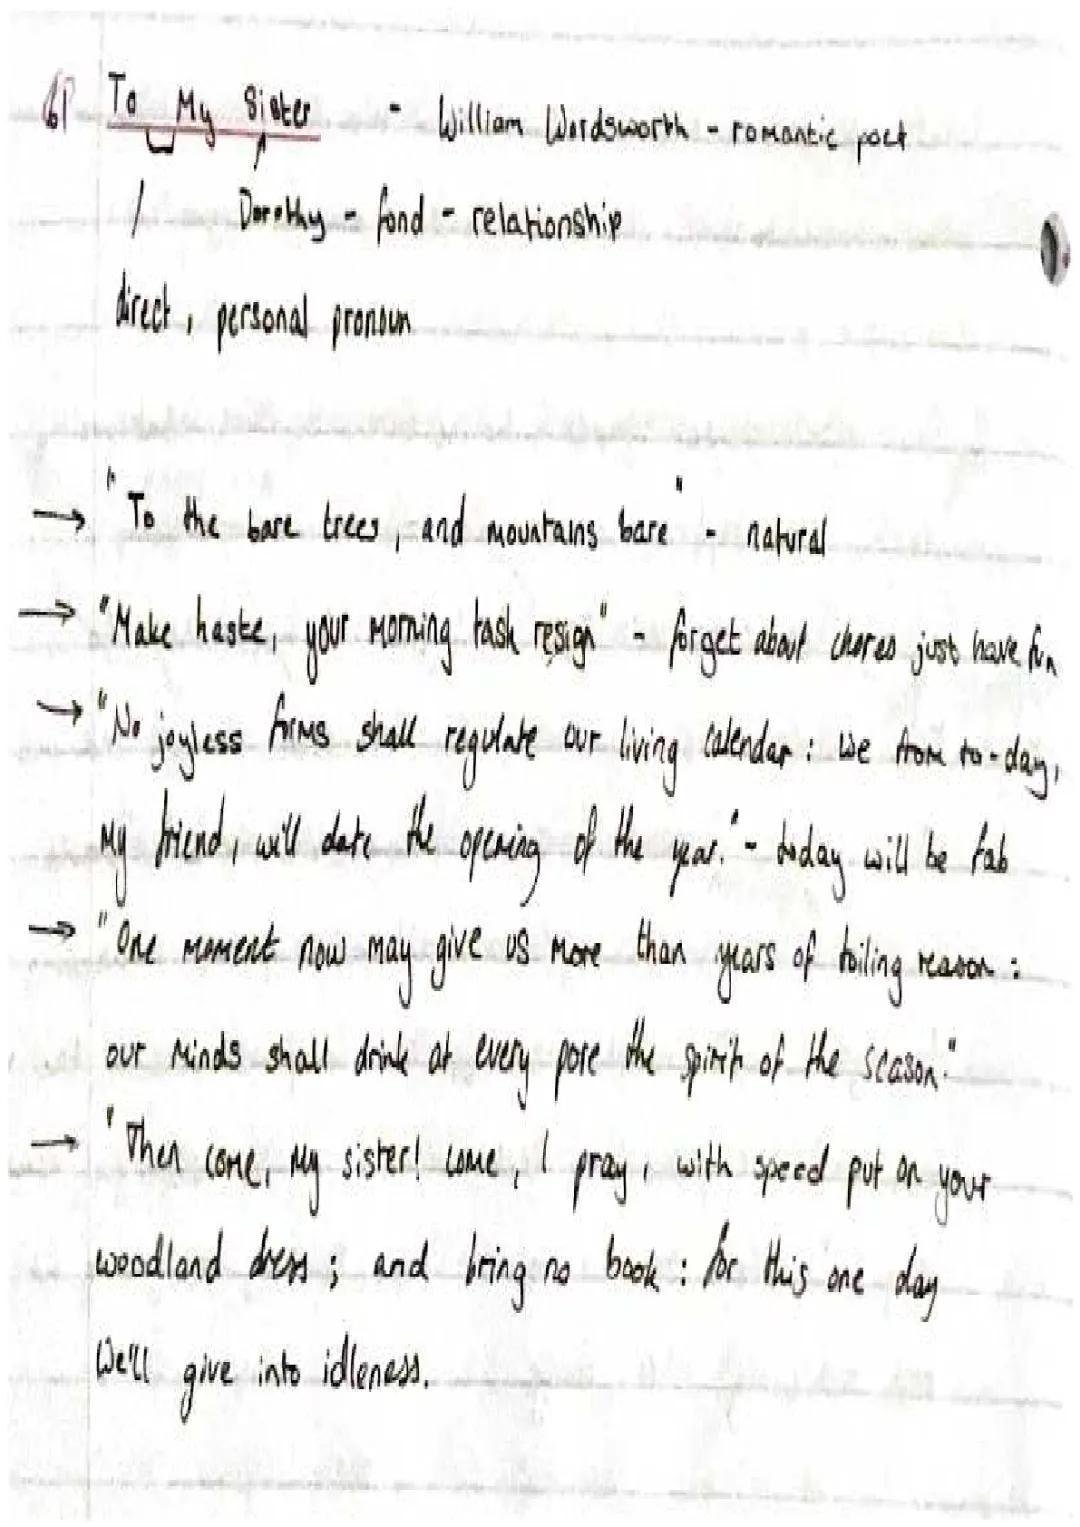 61 To My Sister - William Wordsworth - romantic poet
/ Dorothy - fond - relationship
direct, personal pronoun
→ "To the bare trees, and mountains bare" - natural
→ "Make haste, your morning task resign" - forget about chores just have fun
→ "No joyless forms shall regulate our living Calendar: We from to-day,
My friend, will date the opening of the year." - today will be fab
→ "One moment now may give us more than years of toiling reason:
our minds shall drink at every pore the spirit of the season."
→ "Then come, my sister! come, I pray, with speed put on your
woodland dress; and bring no book: for this one day
We'll give into idleness.